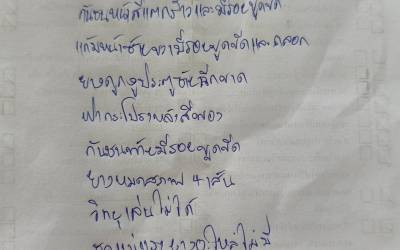 กันชนหน้าสีแตกร้าวและมีรอยขูดขีด
แก้มหน้าซ้ายขวามีรอยขูดขีดและถลอก
ยางคูกงูประตูซ้ายฉีกขาด
ฝากระโปรงหลังสีพอง
กันชนท้ายมีรอยขูดขีด
ยางหมดสภาพ 4 เส้น
วิทยุเล่นไม่ได้
ไม่มี